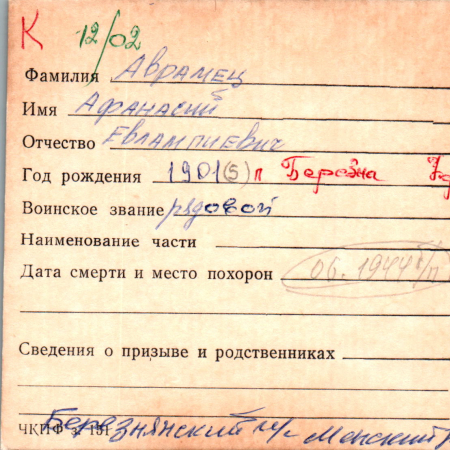 К 12/02
Фамилия Аврамец
Имя Афанасий
Отчество Евлампиевич
Год рождения 1901(5) п Березна
Воинское звание рядовой
Наименование части
Дата смерти и место похорон 06.1944 б/п
Сведения о призыве и родственниках
Березнянский Менский
ЧКПФ з. 151